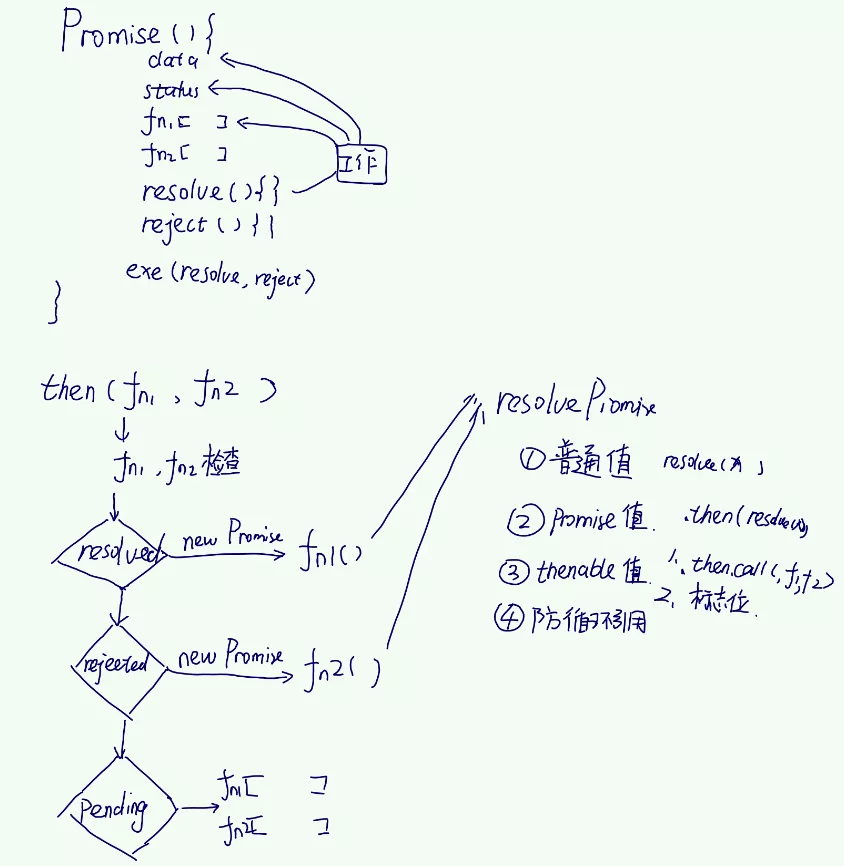 Promise () {
data
status
fn1[ ]
fn2[ ]
工作
resolve () { }
reject () { }
exe (resolve, reject)
}
then ( fn1 , fn2 )
fn1 , fn2 检查
resolved
new Promise
fn1()
rejected
new Promise
fn2( )
pending
fn1[ ]
fn2[ ]
resolvePromise
① 普通值 resolve(x)
② Promise 值. .then(resolve
③ thenable 值. 1、.then.call(, f1, f2)
2、标志位.
④ 防循环引用